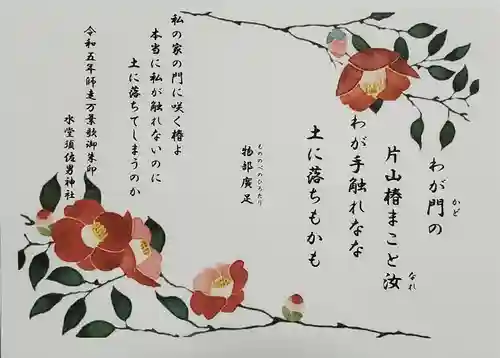 わが門の
かど
片山椿まこと汝
なれ
わが手触れなな
土に落ちもかも
物部廣足
もののべのひろたり
私の家の門に咲く椿よ
本当に私が触れないのに
土に落ちてしまうのか
令和五年師走万葉歌御朱印
水堂須佐男神社